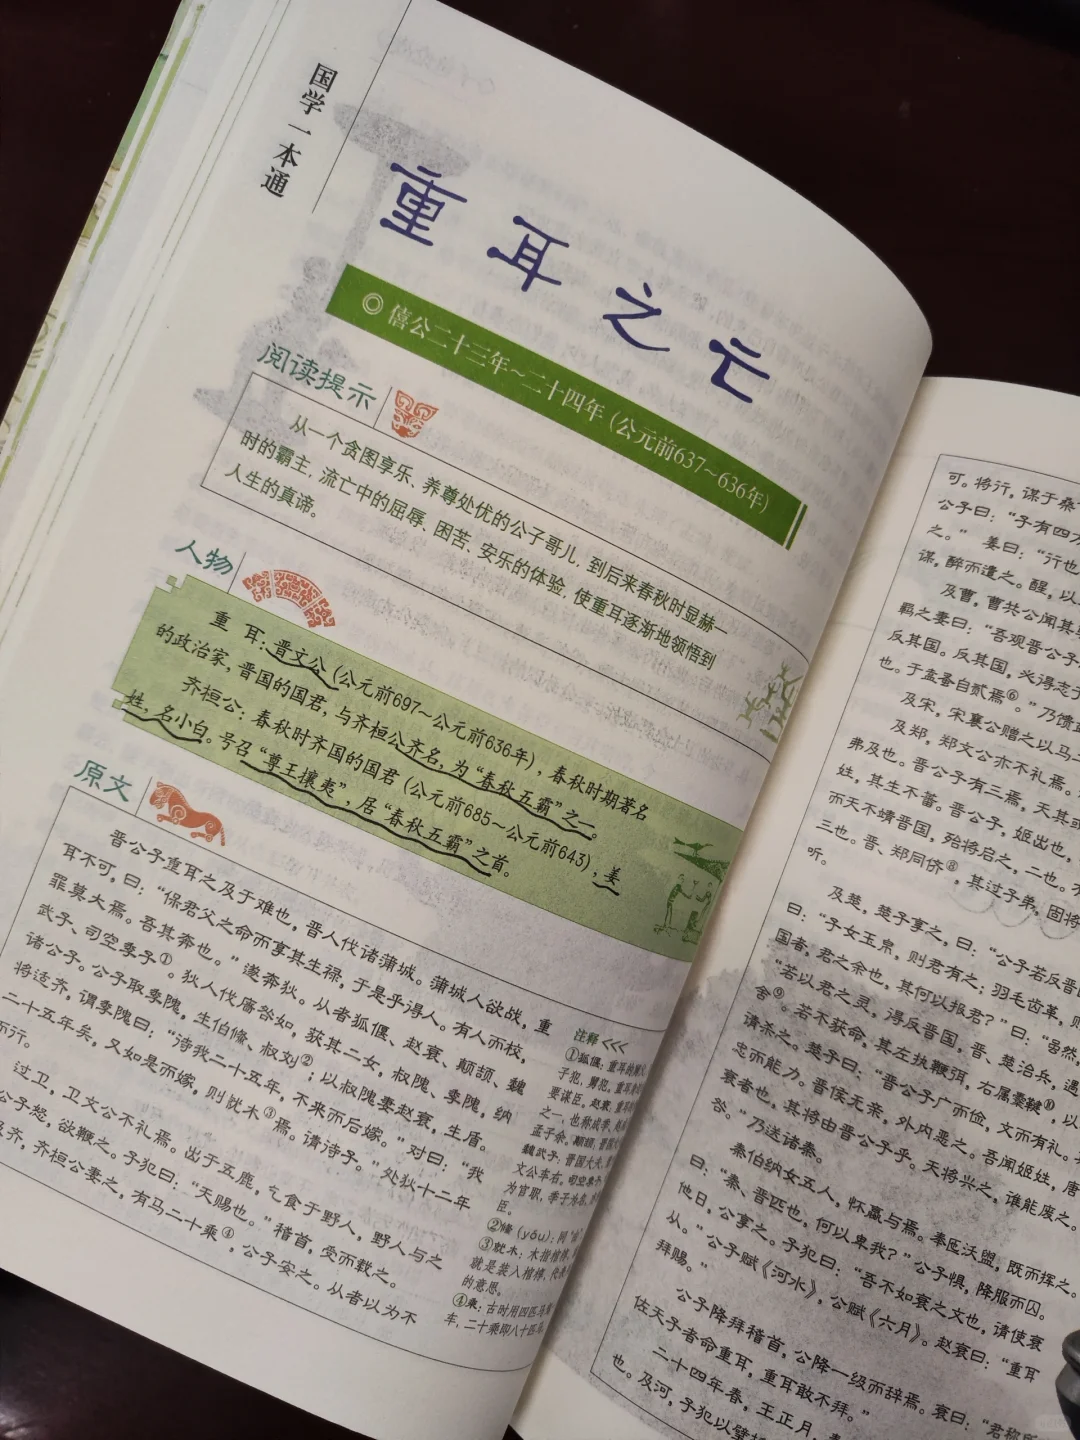 国学一本通
重耳之亡
◎ 僖公二十三年～二十四年（公元前637～636年）
阅读提示
从一个贪图享乐、养尊处优的公子哥儿，到后来春秋时显赫一
时的霸主，流亡中的屈辱、困苦、安乐的体验，使重耳逐渐地领悟到
人生的真谛。
人物
重耳：晋文公（公元前697～公元前636年），春秋时期著名
的政治家，晋国的国君，与齐桓公齐名，为“春秋五霸”之一。
齐桓公：春秋时齐国的国君（公元前685～公元前643），姜
姓，名小白。号召“尊王攘夷”，居“春秋五霸”之首。
原文
晋公子重耳之及于难也，晋人伐诸蒲城。蒲城人欲战，重
耳不可，曰：“保君父之命而享其生禄，于是乎得人。有人而校，
罪莫大焉。吾其奔也。”遂奔狄。从者狐偃、赵衰、颠颉、魏
武子、司空季子①。狄人伐廧咎如，获其二女，叔隗、季隗，纳
诸公子。公子取季隗，生伯鯈、叔刘②；以叔隗妻赵衰，生盾。
将适齐，谓季隗曰：“待我二十五年，不来而后嫁。”对曰：“我
二十五年矣，又如是而嫁，则就木③焉。请待子。”处狄十二年
而行。
过卫，卫文公不礼焉。出于五鹿，乞食于野人，野人与之
公子怒，欲鞭之。子犯曰：“天赐也。”稽首，受而载之。
齐，齐桓公妻之，有马二十乘④，公子安之。从者以为不
注释 <<<
①狐偃：重耳的舅
子犯、舅犯。重耳
要谋臣。赵衰：重耳
之一，也称成季、
孟子余。颠颉：晋国
魏武子：晋国大夫，
文公车右。司空季子
为官职，季子为
臣。
②鯈（yóu）：同“
③就木：木指棺椁，
就是装入棺椁，代
的意思。
④乘：古时用四匹马
车，二十乘即八十匹
可。将行，谋于桑
公子曰：“子有四方
之。”姜曰：“行也
谋，醉而遣之。醒，以
及曹，曹共公闻其
羁之妻曰：“吾观晋公子
反其国。反其国，必得志于
也。子盍蚤自贰焉⑥。”乃馈
及宋，宋襄公赠之以马二
及郑，郑文公亦不礼焉。
弗及也。晋公子有三焉，天其或
姓，其生不蕃。晋公子，姬出也，
而天不靖晋国，殆将启之，二也。
三也。晋、郑同侪⑧，其过子弟，固将
听。
及楚，楚子享之，曰：“公子若反晋
曰：“子女玉帛，则君有之；羽毛齿革，则
国者，君之余也，其何以报君？”曰：“虽然，
“若以君之灵，得反晋国，晋、楚治兵，遇
舍⑨。若不获命，其左执鞭弭，右属櫜鞬⑩，以
请杀之。楚子曰：“晋公子广而俭，文而有礼。
忠而能力。晋侯无亲，外内恶之。吾闻姬姓，唐
衰者也，其将由晋公子乎。天将兴之，谁能废之。
咎。”乃送诸秦。
秦伯纳女五人，怀嬴与焉。奉匜沃盥，既而挥之。
曰：“秦、晋匹也，何以卑我？”公子惧，降服而囚。
他日，公享之。子犯曰：“吾不如衰之文也，请使衰
从。”公子赋《河水》，公赋《六月》。赵衰曰：“重耳
拜赐。”
公子降拜稽首，公降一级而辞焉。衰曰：“君称所
佐天子者命重耳，重耳敢不拜。”
二十四年春，王正月，
也。及河，子犯以璧